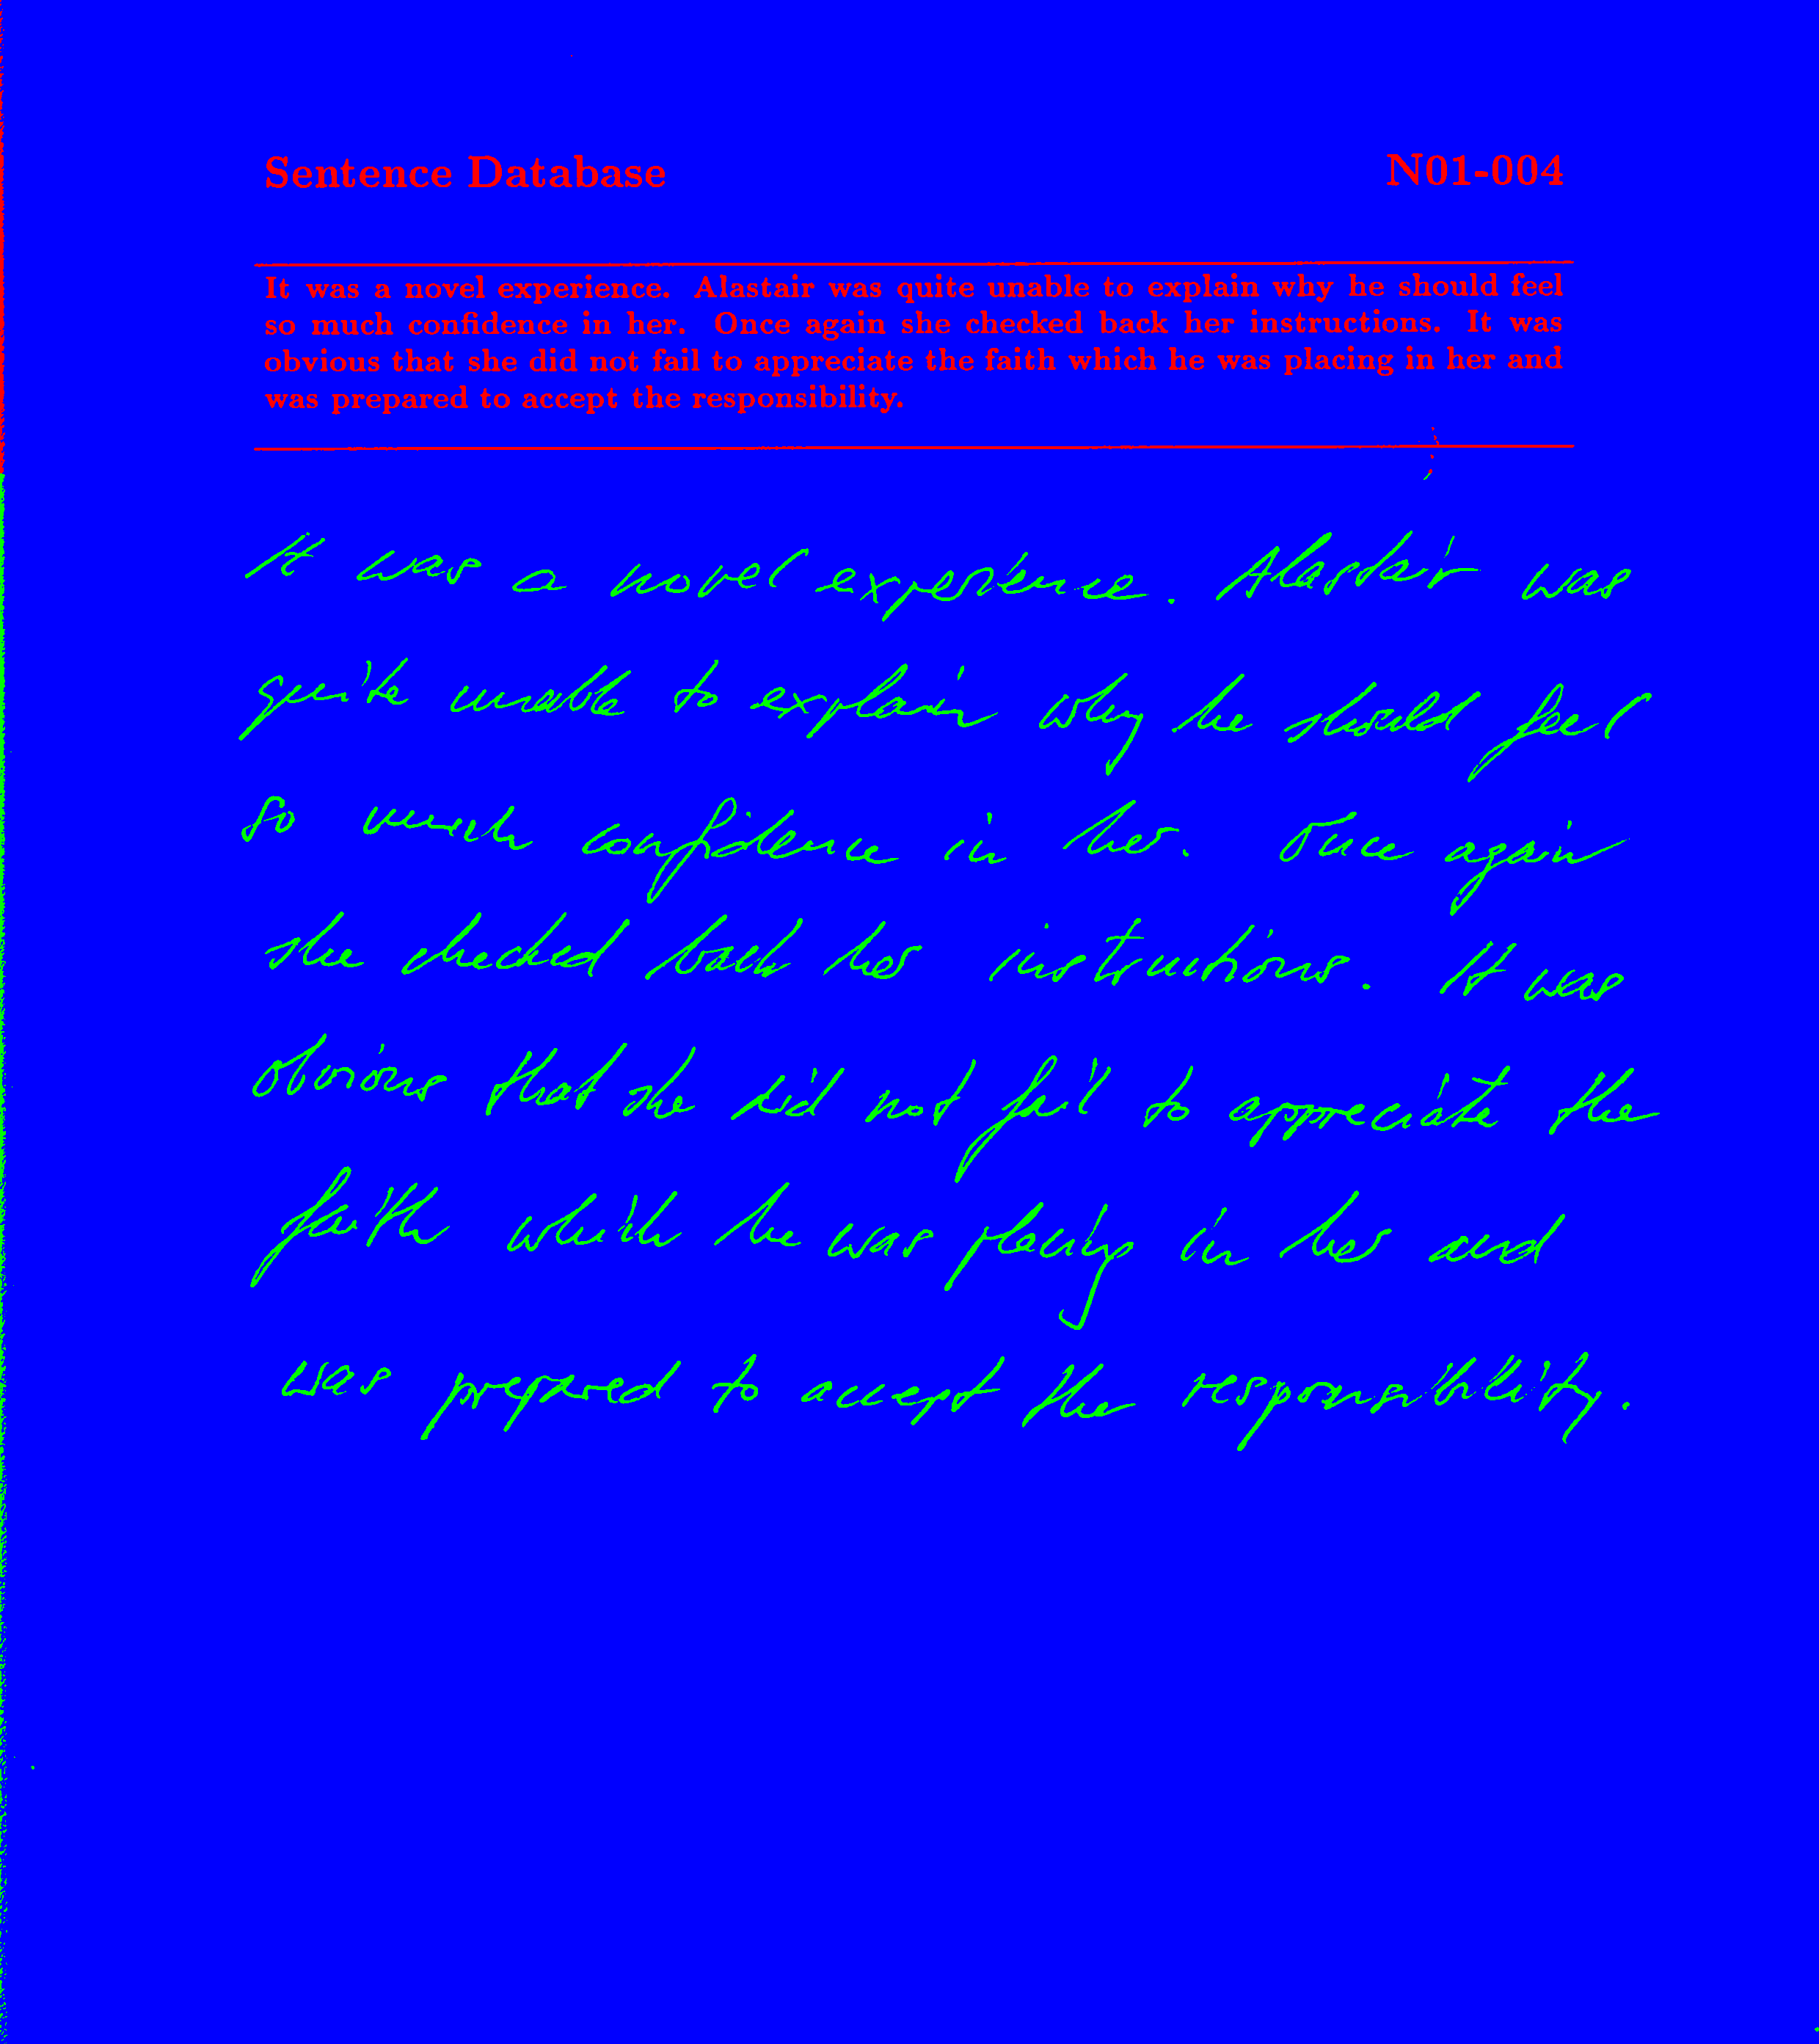 Sentence Database N01-004
It was a novel experience. Alastair was quite unable to explain why he should feel
so much confidence in her. Once again she checked back her instructions. It was
obvious that she did not fail to appreciate the faith which he was placing in her and
was prepared to accept the responsibility.
It was a novel experience. Alastair was
quite unable to explain why he should feel
so much confidence in her. Once again
she checked back her instructions. It was
obvious that she did not fail to appreciate the
faith which he was placing in her and
was prepared to accept the responsibility.